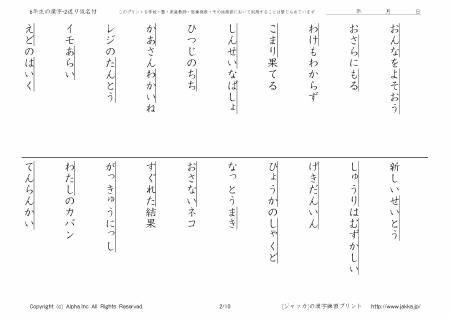 6年生の漢字-2送り仮名付
このプリントを学校・塾・家庭教師・医療機関・その他教室において利用することは禁じられています
年 月 日
おんなをよそおう
おさらにもる
わけもわからず
こまり果てる
しんせいなばしょ
ひつじのちち
かあさんわかいね
レジのたんとう
イモあらい
えどのはいく
新しいせいとう
しゅうりはむずかしい
げきだんいん
ひょうかのしゃくど
なっとうまき
おさないネコ
すぐれた結果
がっきゅうにっし
わたしのカバン
てんらんかい
Copyright (c) Alpha.Inc All Rights Reserved.
2/10
[ジャッカ]の漢字練習プリント http://www.jakka.jp/